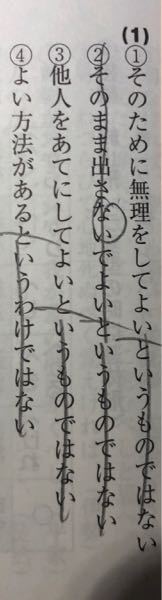 (1)
①そのために無理をしてよいというものではない
②そのまま出さないでよいというものではない
③他人をあてにしてよいというものではない
④よい方法があるというわけではない